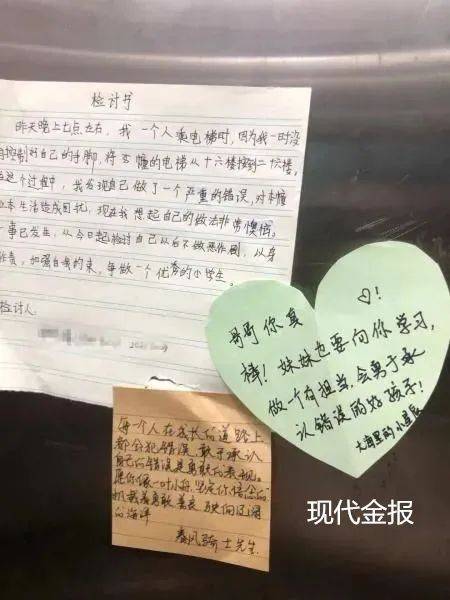 检讨书
昨天晚上七点左右，我一个人乘电梯时，因为我一时没
控制好自己的手脚，将 幢的电梯从十六楼按到二十六楼。
在这个过程中，我发现自己做了一个严重的错误，对本幢
业主生活造成困扰，现在我想起自己的做法非常懊悔。
事已发生，从今日起检讨自己以后不做恶作剧，以身
作责，加强自我约束，争做一个优秀的小学生。
检讨人
♡！
哥哥你真
棒！妹妹也要向你学习，
做一个有担当，会勇于承
认错误的好孩子！
大海里的小星辰
每一个人在成长的道路上
都会犯错误 敢于承认
自己的错误是勇敢的表现。
愿你像一叶小舟，坚定你信念的
帆载着勇敢 善良 驶向辽阔
的海洋
春风骑士先生
现代金报